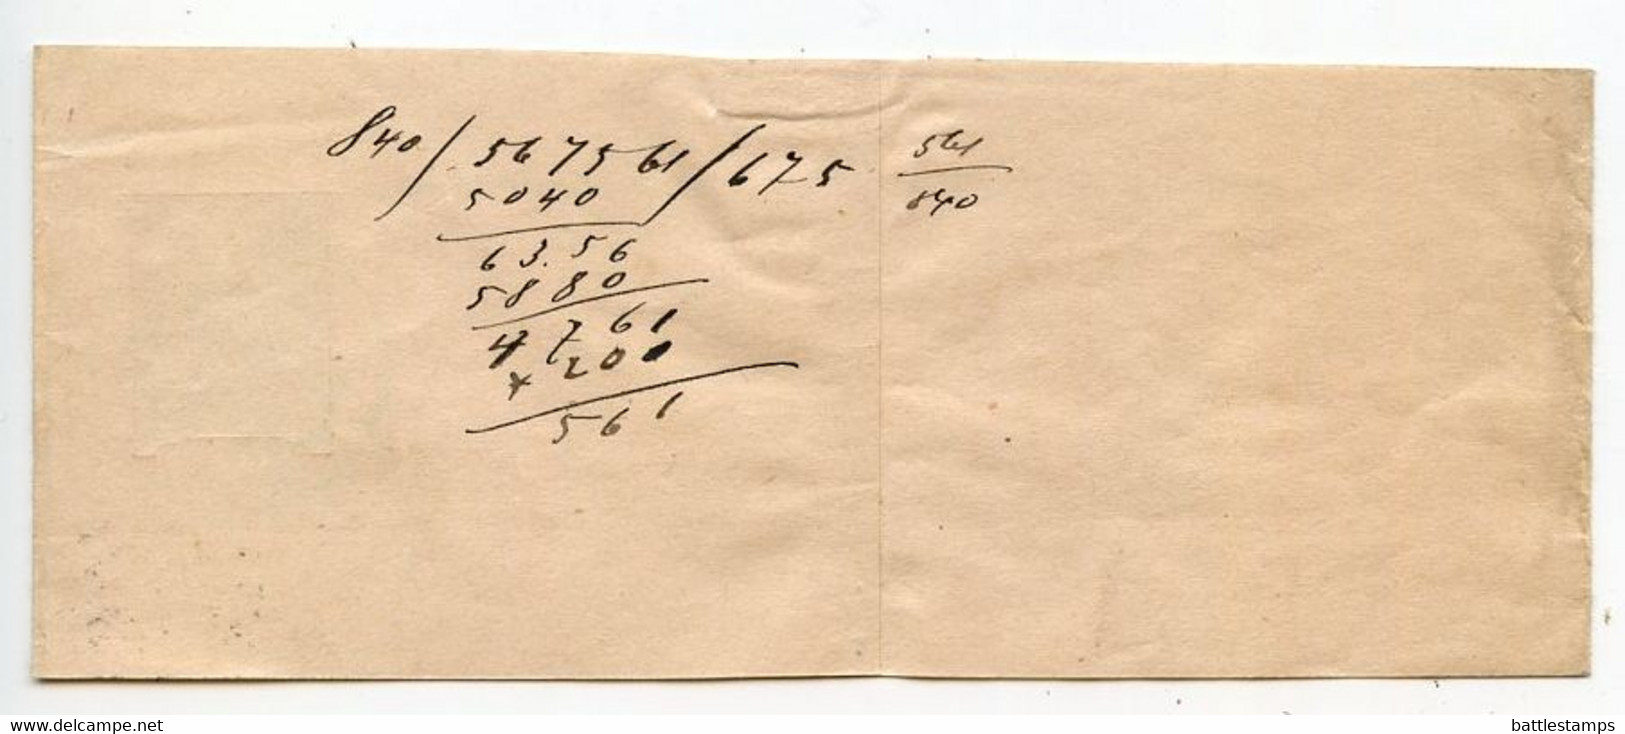 840 / 567561 / 675 561
840
5040
63.56
5880
4761
4200
561
www.delcampe.net
battlestamps